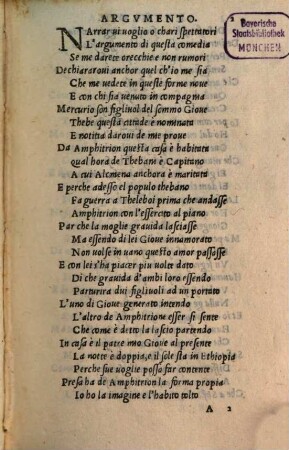 ARGVMENTO.
Bayerische
Staatsbibliothek
MÜNCHEN
NArrar ui uoglio o chari spettatori
L'argumento di questa comedia
Se me darete orecchie e non rumori
Dechiararoui anchor quel ch'io me sia
Che me uedete in queste forme noue
E con chi sia uenuto in compagnia
Mercurio son figliuol del sommo Gioue
Thebe questa cittade è nominata
E notitia daroui de mie proue
Da Amphitrion questa casa è habitata
qual hora de Thebani è Capitano
A cui Alcmena anchora è maritata
E perche adesso el populo thebano
Fa guerra a Theleboi prima che andasse
Amphitrion con l'essercito al piano
Par che la moglie grauida lasciasse
Ma essendo di lei Gioue innamorato
Non uolse in uano questo amor passasse
E con lei s'ha piacer piu uolte dato
Di che grauida d'ambi loro essendo
Parturira dui figliuoli ad un portato
L'uno di Gioue generato intendo
L'altro de Amphitrione esser si sente
Che come è detto la lascio partendo
In casa è il patre mio Gioue al presente
La notte è doppia, e il sole sta in Ethiopia
Perche sue uoglie possa far contente
Presa ha de Amphitrion la forma propia
Io ho la imagine e l'habito tolto
A 2